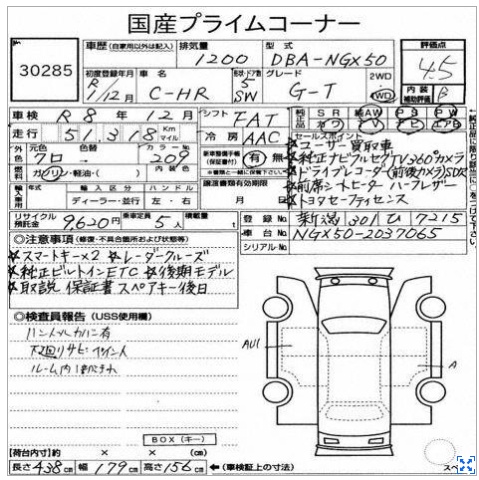 国産プライムコーナー
30285
車歴(自家用以外は記入) 排気量 型式
1200 DBA-NGX50
評価点
4.5
初度登録年月 車名 形状・ドア数 グレード 2WD
R1/12月 C-HR 5 SW G-T 4WD
内装補助評価 B
車検 R 8年12月 シフト FAT
純正品 SR 純AW PS PW
走行 51,318 Km マイル 冷房 AAC
セールスポイント
外色 元色 色替 カラーNo
クロ 209
新車整備手帳(保証書付) 有・無
★ユーザー買取車
★純正ナビフルセグTV360°カメラ
★ドライブレコーダー(前後カメラ)SDX
★前席シートヒーター ハーフレザー
★トヨタセーフティセンス
燃料 ガソリン・軽油・( )
輸入車用 年式 輸入区分 ハンドル
年 ディーラー・並行 左・右
譲渡書類有効期限
月 日
リサイクル預託金 9,620円 乗車定員 5人 積載量 t
登録No 新潟 301 ひ 7215
車台No NGX50-2037065
シリアルNo
◎注意事項(修復・不具合箇所および状態等)
★スマートキー×2 ★レーダークルーズ
★純正ビルトインETC ★後期モデル
★取説 保証書 スペアキー後日
◎検査員報告(USS使用欄)
ルーム内
AU1
A
BOX(キー)
【荷台内寸】約 × × (cm)
長さ 438cm 幅 179cm 高さ 156cm ←(車検証上の寸法)
スペ